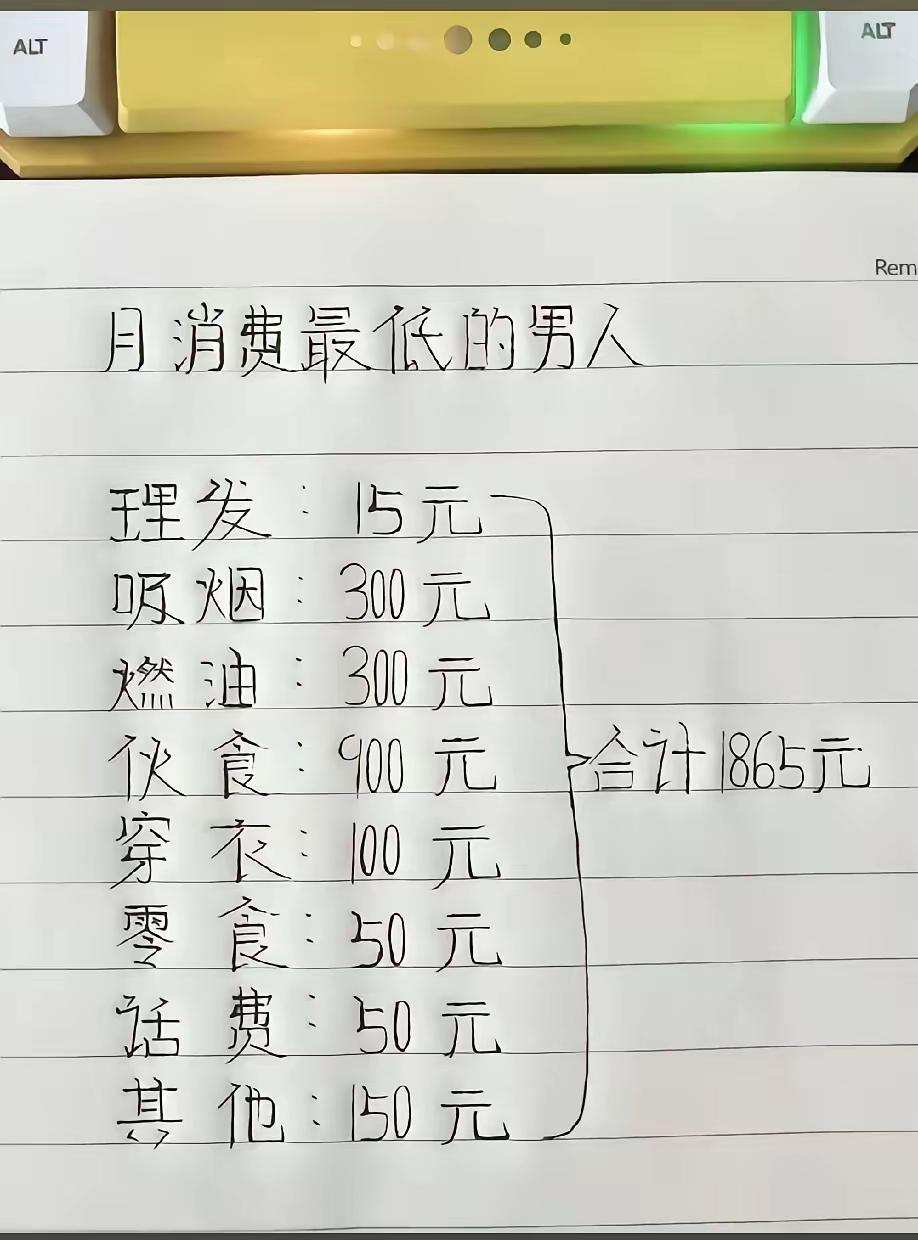 ALT
ALT
Rem
月消费最低的男人
理发：15元
吸烟：300元
燃油：300元
伙食：900元
穿衣：100元
零食：50元
话费：50元
其他：150元
合计1865元